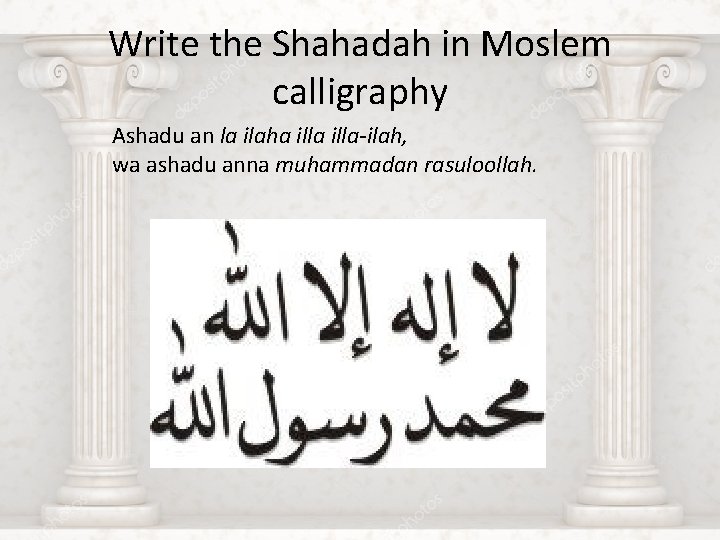 Write the Shahadah in Moslem
calligraphy
Ashadu an la ilaha illa illa-ilah,
wa ashadu anna muhammadan rasuloollah.
لا إله إلا الله
محمد رسول الله
depositphotos
depositphotos
depositphotos
depositphotos